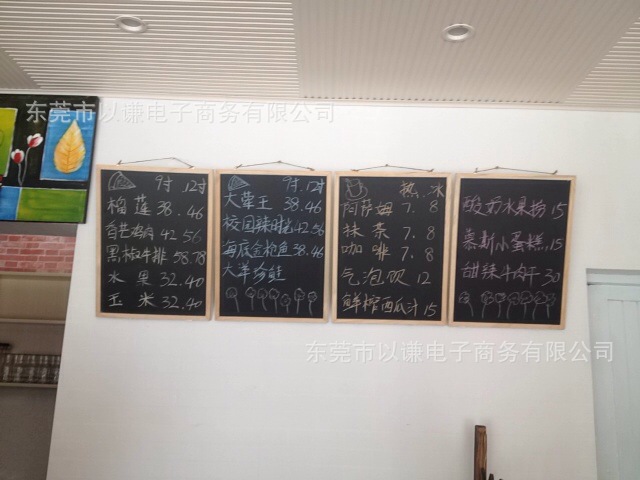 东莞市以谦电子商务有限公司
9寸 12寸
榴莲 38.46
香芒鸡肉 42 56
黑椒牛排 58.78
水果 32.40
玉米 32.40
9寸.12寸
大荤王 38.46
校园辣啪 42 56
海底金枪鱼 38.46
大洋珍鲑
热 冰
阿萨姆 7. 8
抹茶 7. 8
咖啡 7. 8
气泡饮 12
鲜榨西瓜汁 15
酸奶水果捞 15
慕斯小蛋糕 15
甜辣牛肉干 30
东莞市以谦电子商务有限公司